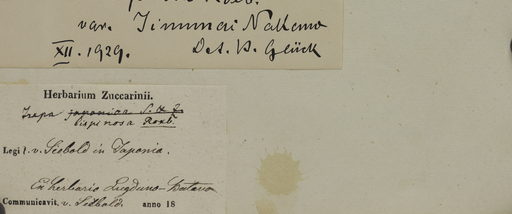 var. Jinumai Nakano
XII. 1929. Det. H. Glück
Herbarium Zuccarinii.
Trapa japonica S. & Z.
bispinosa Roxb.
Legit. v. Siebold in Japonia.
Ex herbario Lugduno-Batavo
Communicavit, v. Siebold. anno 18